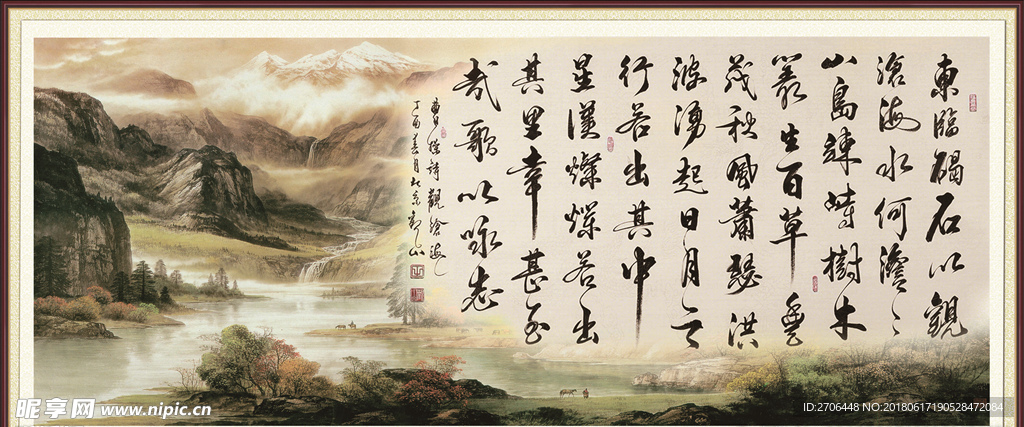 東臨碣石以觀
滄海水何澹々
山島竦峙樹木
叢生百草豐
茂秋風蕭瑟洪
波湧起日月之
行若出其中
星漢燦爛若出
其里幸甚至
哉歌以咏志
曹操詩觀滄海
丁酉春月北京
昵享网 www.nipic.cn
ID:2706448 NO:20180617190528472084